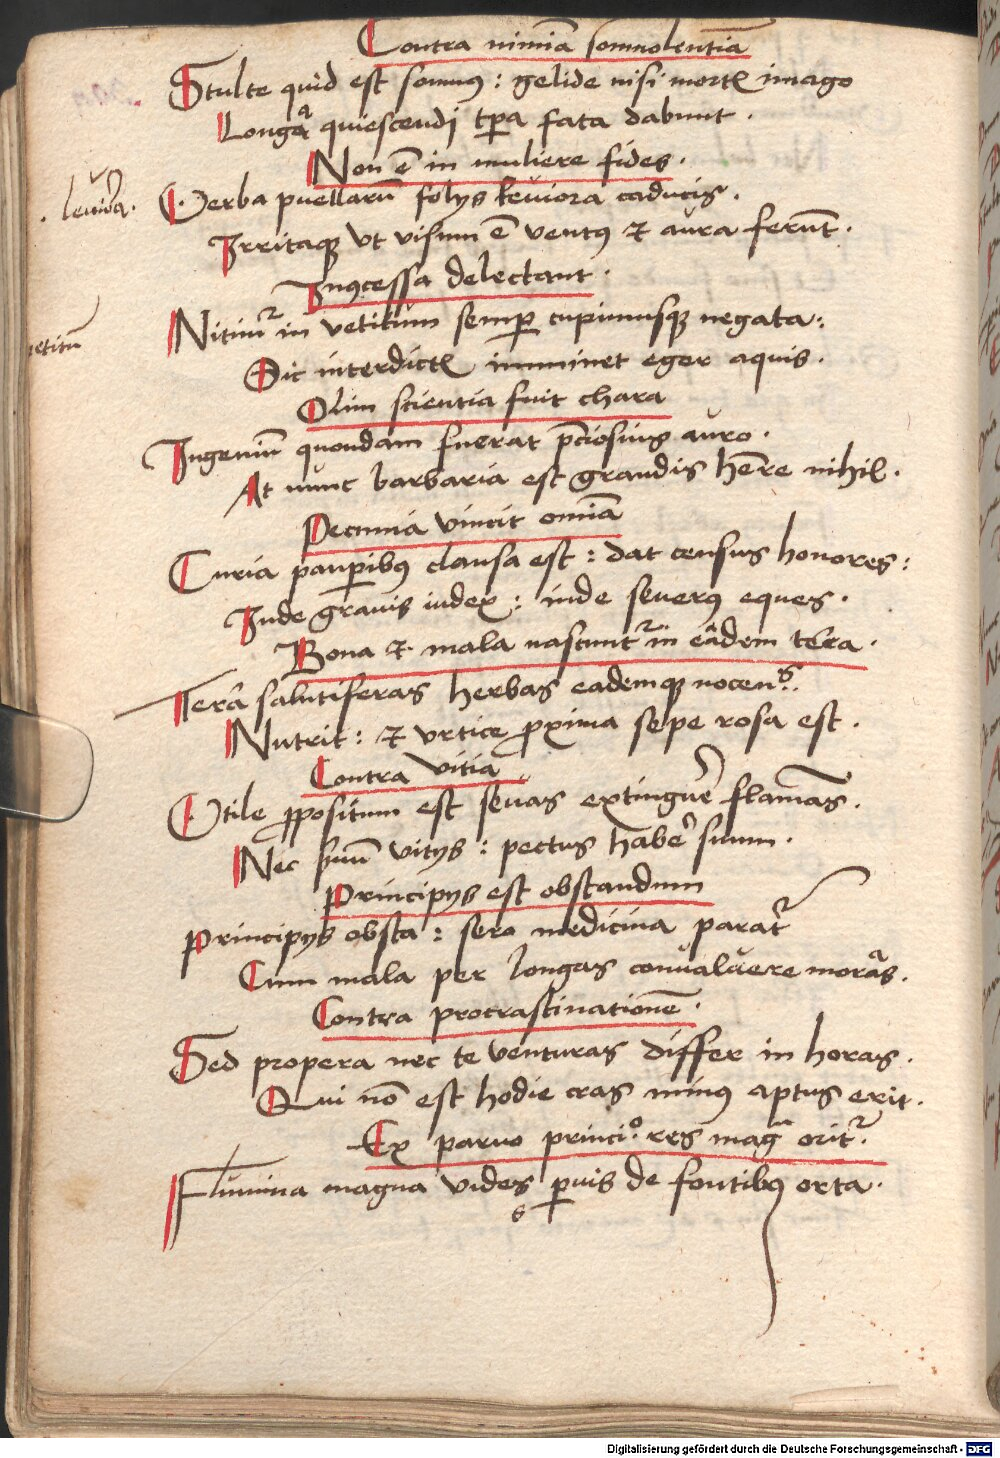 Contra nimiā somnolentiā
Stulte quid est somnꝰ : gelide nisi mortꝭ imago
Longaͣ quiescendj tp̄a fata dabunt .
Non ē in muliere fides .
. leuiora .
Verba puellarū folijs leuiora caducis .
Irritaqꝫ vt visum ē ventꝰ et aura ferūt .
Inꝯcessa delectant .
Nitimur in vetitum semꝑ cupimusqꝫ negata :
vetitū
Sic interdictꝭ imminet eger aquis .
Olim scientia fuit chara
Ingeniū quondam fuerat p̄ciosius auro .
At nunc barbaria est grandis hēre nihil .
Pecunia vincit omiā
Curia pauꝑibꝰ clausa est : dat census honores :
Inde grauis iudex : inde seuerꝰ eques .
Bona et mala nascuntr in eādem terra .
Terrā salutiferas herbas eademqꝫ nocens .
Nutrit : et vrtice ꝓxima sepe rosa est .
Contra vitia
Vtile ꝓpositum est seuas extinguē flammas .
Nec suū vitijs : pectus habē suum .
Principijs est obstandum
Principijs obsta : sero medicina paratr
Cum mala per longas conualuere moras .
Contra procrastinationē .
Sed propera nec te venturas differ in horas .
Qui nō est hodie cras minꝰ aptus erit .
Ex paruo princio . res magͣ oritr .
Flumina magna vides ꝑuis de fontibꝰ orta .
Digitalisierung gefördert durch die Deutsche Forschungsgemeinschaft - DFG